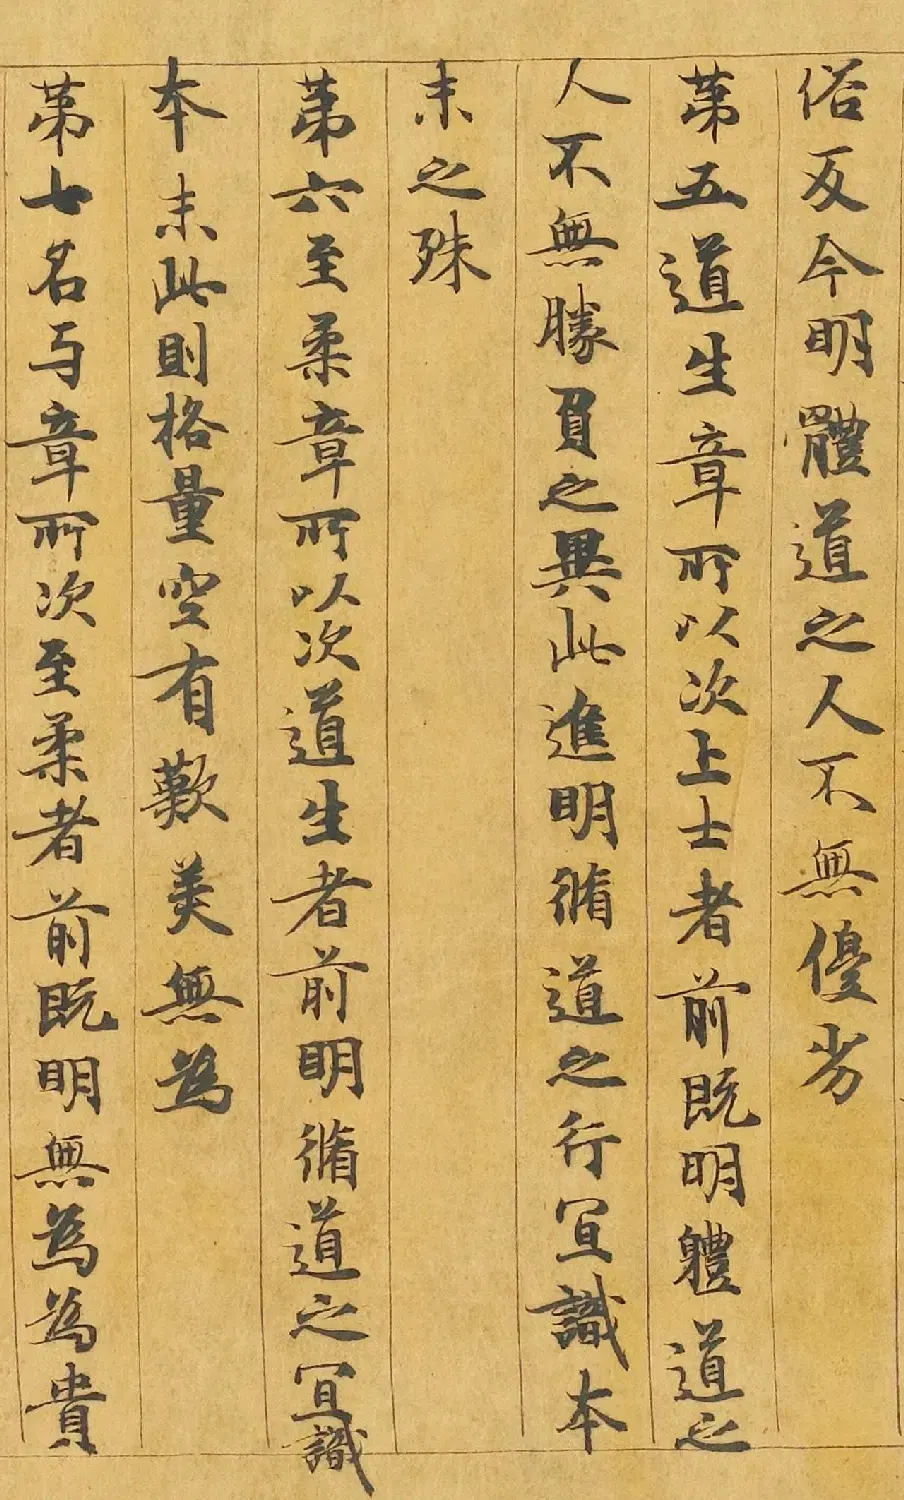 俗反今明體道之人不無優劣
苐五道生章所以次上士者前既明軆道之
人不無勝負之異此進明脩道之行冝識本
末之殊
苐六至柔章所以次道生者前明脩道之冝識
本末此則格量空有歎美無為
苐七名与章所次至柔者前既明無為為貴